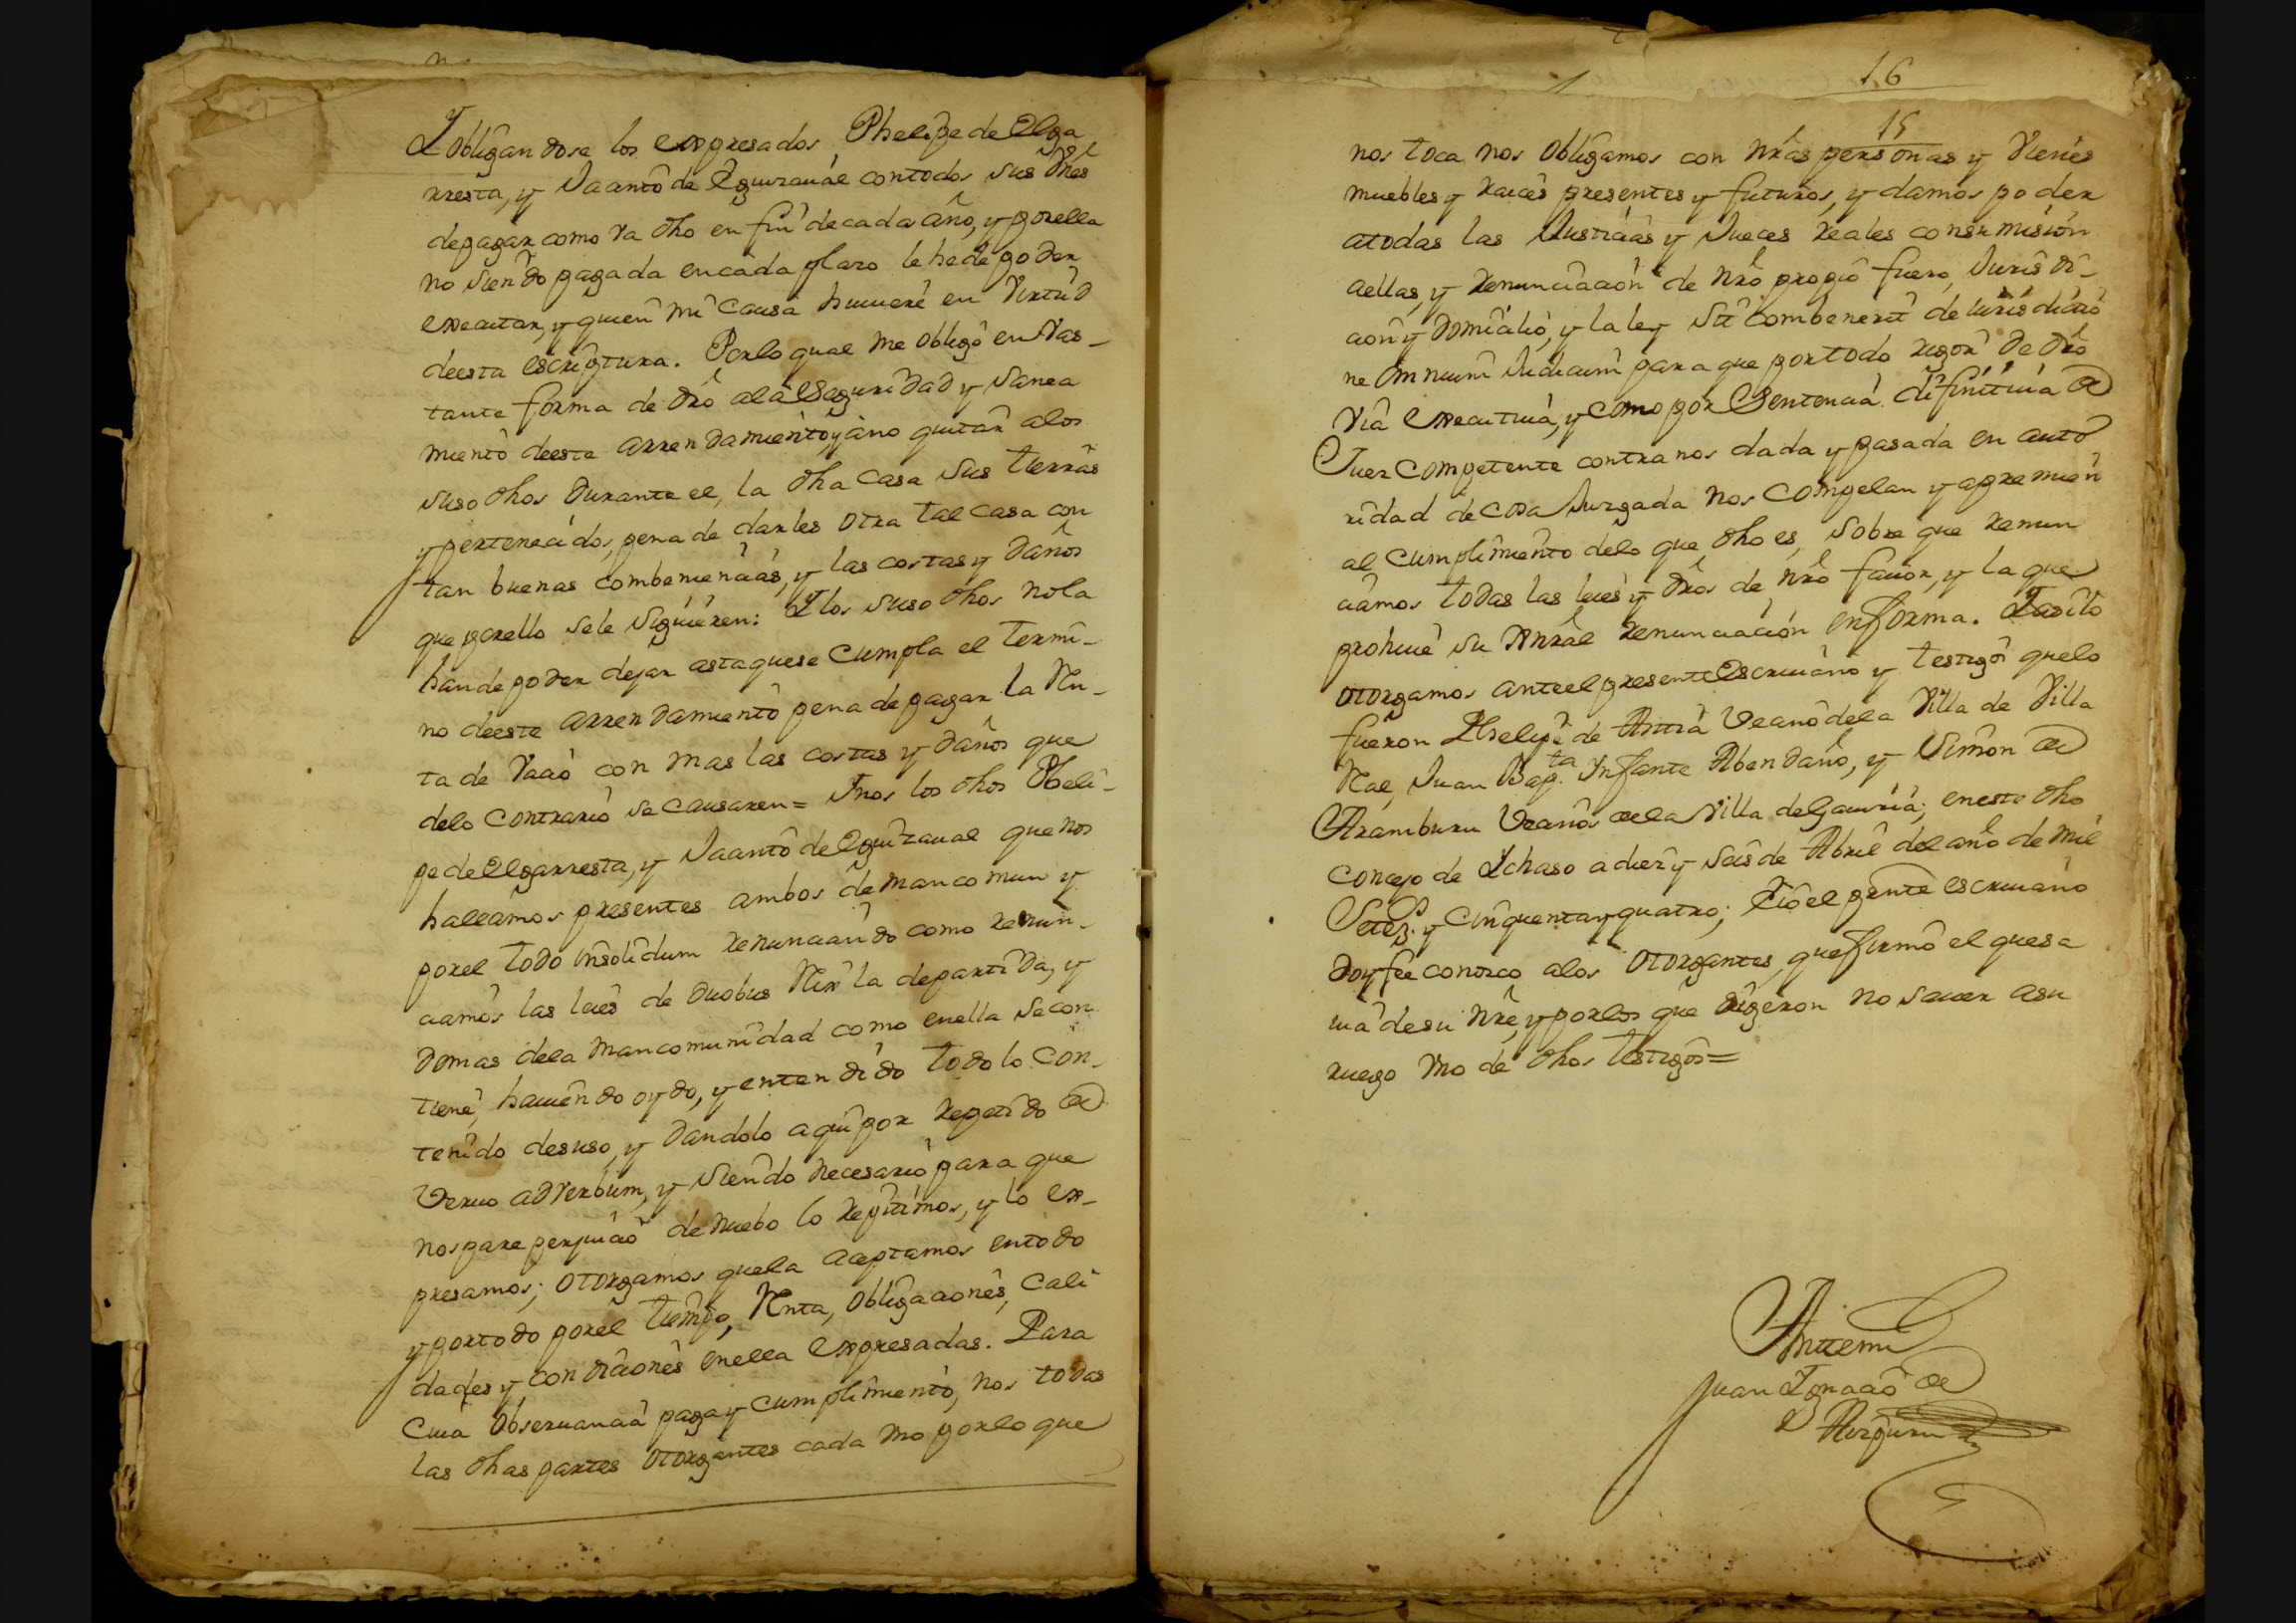 Y obligandose los expresados Phelipe de Elga
rresta, y Jaanto de Eguizaual con todos sus vnes
de pagar como va dho en fin de cada año, y por ella
no siendo pagada en cada plazo le he de poder
executar, y quien mi causa huuiere en virtud
de esta escriptura. Por lo qual me obligo en vas-
tante forma de dro a la Seguridad y sanea
miento de este arrendamiento, y a no quitar a los
suso dhos durante el, la dha casa sus tierras
y pertenecidos, pena de darles otra tal casa con
tan buenas combeniencias, y las costas y daños
que por ello se le siguieren: Y los suso dhos no la
han de poder dejar asta que se cumpla el termi-
no de este arrendamiento pena de pagar la Ren-
ta de vacio con mas las costas y daños que
de lo contrario se causaren = Y nos los dhos Pheli-
pe de Elgarresta, y Jaanto de Eguizaual que nos
hallamos presentes ambos de mancomun y
por el todo insolidum renunciando como renun-
ciamos las leies de duobus Rex la departida, y
demas de la mancomunidad como en ella se con
tiene, hauiendo oydo, y entendido todo lo con-
tenido desuso, y dandolo aqui por repetido de
Veruo adverbum, y siendo necesario para que
nos pare perjuicio de nuebo lo repitimos, y lo ex-
presamos; otorgamos que la aceptamos en todo
y por todo por el tiempo, Renta, obligaciones, cali
dades y condiciones en ella expresadas. Para
cuia obseruancia paga y cumplimiento, nos todas
las dhas partes otorgantes cada vno por lo que
16
15
nos toca nos obligamos con nras personas y vienes
muebles y raices presentes y futuros, y damos poder
a todas las Justicias y Jueces reales con sumision
a ellas, y renunciacion de nro propio fuero, Jurisdi-
cion y domicilio, y la ley Sit combenerit de iurisdicio
ne omnium Judicum para que por todo rigor de dro
via executiua, y como por Sentencia difinitiua de
Juez competente contra nos dada y pasada en auto
ridad de cosa Juzgada nos compelan y apremien
al cumplimiento de lo que dho es, sobre que renun
ciamos todas las leies y dros de nro fauor, y la que
prohiue su gnral renunciacion en forma. Y asi lo
otorgamos ante el presente Escriuano y testigos que lo
fueron Phelipe de Antia Vecino de la Villa de Villa
Real, Juan Bapta. Infante Abendaño, y Simon de
Aramburu Vecinos de la Villa de Gauiria; en este dho
Concejo de Ichaso a diez y seis de Abril del año de mil
Setezs. y cinquenta y quatro; Y io el pnte escriuano
doy fee conozco a los otorgantes, que firmo el que sa
uia de su nre, y por los que digeron no sauer a su
ruego vno de dhos testigos =
Anttemi
Juan Ignacio de
Aizpuru